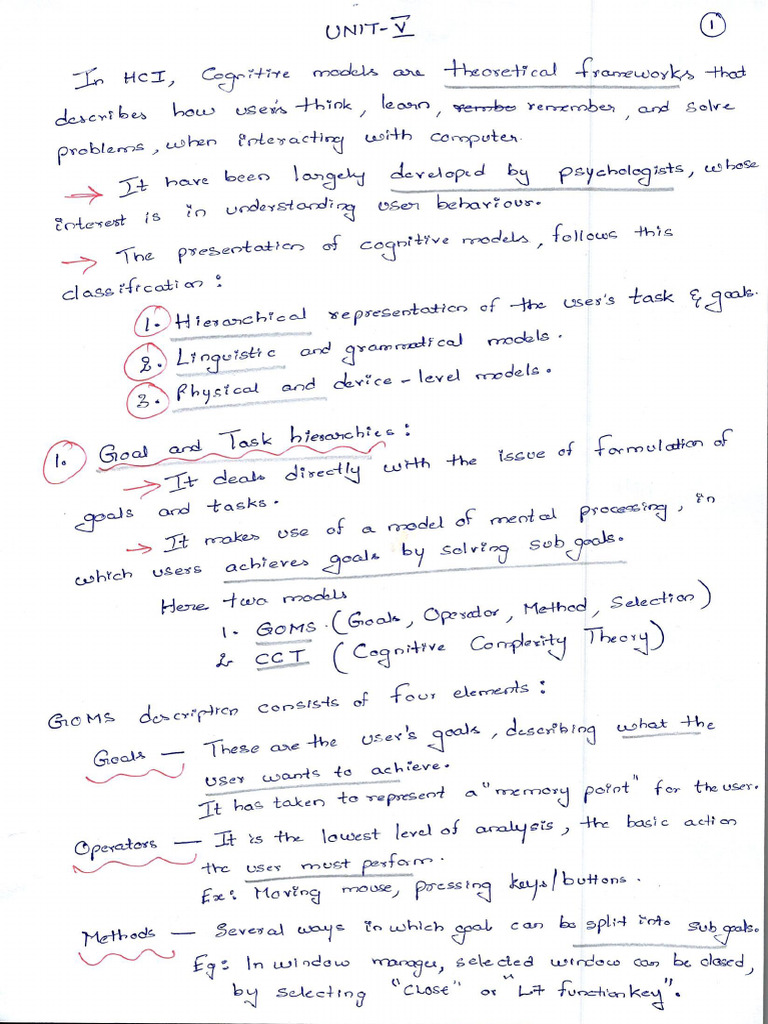 UNIT-V
1
In HCI, Cognitive models are theoretical frameworks that
describes how user's think, learn, rembe remember, and solve
problems, when interacting with computer.
→ It have been largely developed by psychologists, whose
interest is in understanding user behaviour.
→ The presentation of cognitive models, follows this
classification:
1. Hierarchical representation of the user's task & goals.
2. Linguistic and grammatical models.
3. Physical and device-level models.
1. Goal and Task hierarchies:
→ It deals directly with the issue of formulation of
goals and tasks.
→ It makes use of a model of mental processing, in
which users achieves goals by solving sub goals.
Here two models
1. GOMS. (Goals, Operator, Method, Selection)
2. CCT (Cognitive Complexity Theory)
GOMS description consists of four elements:
Goals — These are the user's goals, describing what the
user wants to achieve.
It has taken to represent a "memory point" for the user.
Operators — It is the lowest level of analysis, the basic action
the user must perform.
Ex: Moving mouse, pressing keys/buttons.
Methods — Several ways in which goal can be split into sub goals.
Eg: In window manager, selected window can be closed,
by selecting "CLOSE" or "L7 function key".